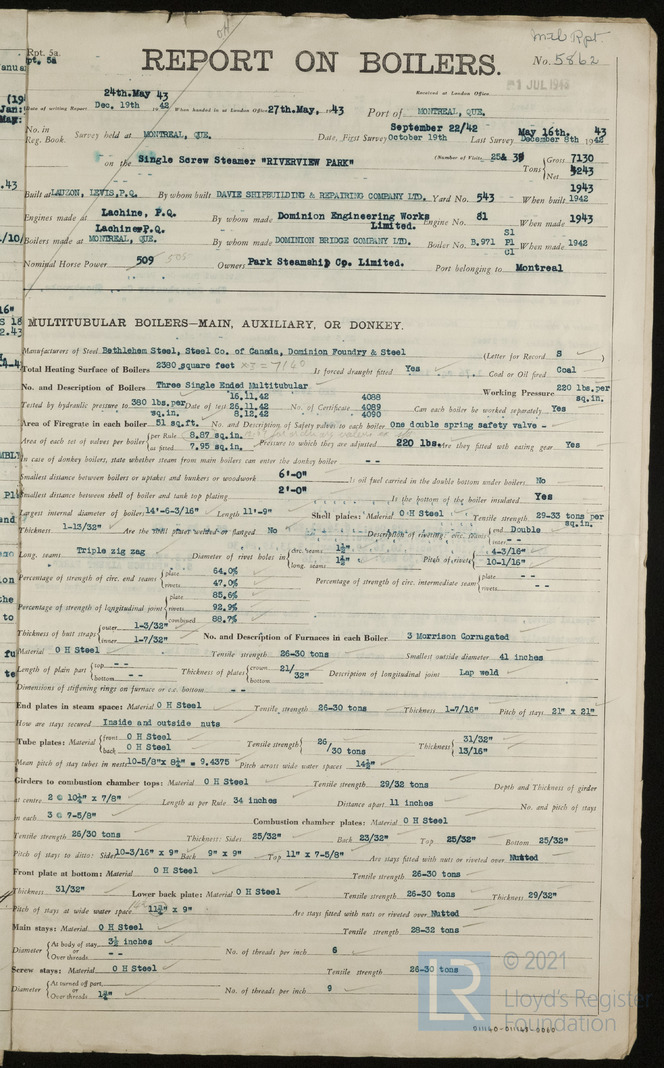 Mtl Rpt.
Rpt. 5a.
REPORT ON BOILERS.
No. 5862
Received at London Office
1 JUL 1943
Date of writing Report 24th.May 43 Dec. 19th 1942 When handed in at London Office 27th.May, 1943 Port of MONTREAL, QUE.
No. in Reg. Book. Survey held at MONTREAL, QUE. Date, First Survey September 22/42 October 19th Last Survey May 16th. 43 December 8th 1942
on the Single Screw Steamer "RIVERVIEW PARK" (Number of Visits 25& ) Tons Gross 7130 Net 4243
Built at LAUZON, LEVIS,P.Q. By whom built DAVIE SHIPBUILDING & REPAIRING COMPANY LTD. Yard No. 543 When built 1943 1942
Engines made at Lachine, P.Q. By whom made Dominion Engineering Works Limited. Engine No. 81 When made 1943
Boilers made at Lachine,P.Q. MONTREAL, QUE. By whom made DOMINION BRIDGE COMPANY LTD. Boiler No. B.971 S1 P1 C1 When made 1942
Nominal Horse Power 509 509 Owners Park Steamship Co. Limited. Port belonging to Montreal
MULTITUBULAR BOILERS—MAIN, AUXILIARY, OR DONKEY.
Manufacturers of Steel Bethlehem Steel, Steel Co. of Canada, Dominion Foundry & Steel (Letter for Record S )
Total Heating Surface of Boilers 2380 square feet x3 = 7140 Is forced draught fitted Yes Coal or Oil fired Coal
No. and Description of Boilers Three Single Ended Multitubular Working Pressure 220 lbs.per sq.in.
Tested by hydraulic pressure to 380 lbs.per sq.in. Date of test 16.11.42 26.11.42 8.12.42 No. of Certificate 4088 4089 4090 Can each boiler be worked separately Yes
Area of Firegrate in each boiler 51 sq.ft. No. and Description of Safety valves to each boiler One double spring safety valve -
Area of each set of valves per boiler per Rule 8.87 sq.in. as fitted 7.95 sq.in. Pressure to which they are adjusted 220 lbs. Are they fitted with easing gear Yes
In case of donkey boilers, state whether steam from main boilers can enter the donkey boiler - -
Smallest distance between boilers or uptakes and bunkers or woodwork 6'-0" Is oil fuel carried in the double bottom under boilers. No
Smallest distance between shell of boiler and tank top plating 2'-0" Is the bottom of the boiler insulated Yes
Largest internal diameter of boilers 14'-6-3/16" Length 11'-9" Shell plates: Material O H Steel Tensile strength 29-33 tons per sq.in.
Thickness 1-13/32" Are the shell plates welded or flanged No Description of riveting: circ. seams end Double inter. - -
Long. seams Triple zig zag Diameter of rivet holes in circ. seams 1½" long. seams 1½" Pitch of rivets 4-3/16" 10-1/16"
Percentage of strength of circ. end seams plate 64.0% rivets 47.0% Percentage of strength of circ. intermediate seam plate - - rivets - -
Percentage of strength of longitudinal joint plate 85.6% rivets 92.9% combined 88.7%
Thickness of butt straps outer 1-3/32" inner 1-7/32" No. and Description of Furnaces in each Boiler 3 Morrison Corrugated
Material O H Steel Tensile strength 26-30 tons Smallest outside diameter 41 inches
Length of plain part top - - bottom - - Thickness of plates crown bottom 21/32" Description of longitudinal joint Lap weld
Dimensions of stiffening rings on furnace or c.c. bottom - -
End plates in steam space: Material O H Steel Tensile strength 26-30 tons Thickness 1-7/16" Pitch of stays 21" x 21"
How are stays secured Inside and outside nuts
Tube plates: Material front O H Steel back O H Steel Tensile strength 26/30 tons Thickness 31/32" 13/16"
Mean pitch of stay tubes in nests 10-5/8"x 8¼" = 9.4375 Pitch across wide water spaces 14½"
Girders to combustion chamber tops: Material O H Steel Tensile strength 29/32 tons Depth and Thickness of girder
at centre 2 @ 10½" x 7/8" Length as per Rule 34 inches Distance apart 11 inches No. and pitch of stays
in each 3 @ 7-5/8" Combustion chamber plates: Material O H Steel
Tensile strength 26/30 tons Thickness: Sides 25/32" Back 23/32" Top 25/32" Bottom 25/32"
Pitch of stays to ditto: Sides 10-3/16" x 9" Back 9" x 9" Top 11" x 7-5/8" Are stays fitted with nuts or riveted over Nutted
Front plate at bottom: Material O H Steel Tensile strength 26-30 tons
Thickness 31/32" Lower back plate: Material O H Steel Tensile strength 26-30 tons Thickness 29/32"
Pitch of stays at wide water space x 9" Are stays fitted with nuts or riveted over Nutted
Main stays: Material O H Steel Tensile strength 28-32 tons
Diameter At body of stay, or Over threads 3½ inches - - No. of threads per inch 6
Screw stays: Material O H Steel Tensile strength 26-30 tons
Diameter At turned off part, or Over threads 1¾" No. of threads per inch 9
© 2021
LR
Lloyd's Register
Foundation
011160-011169-0060